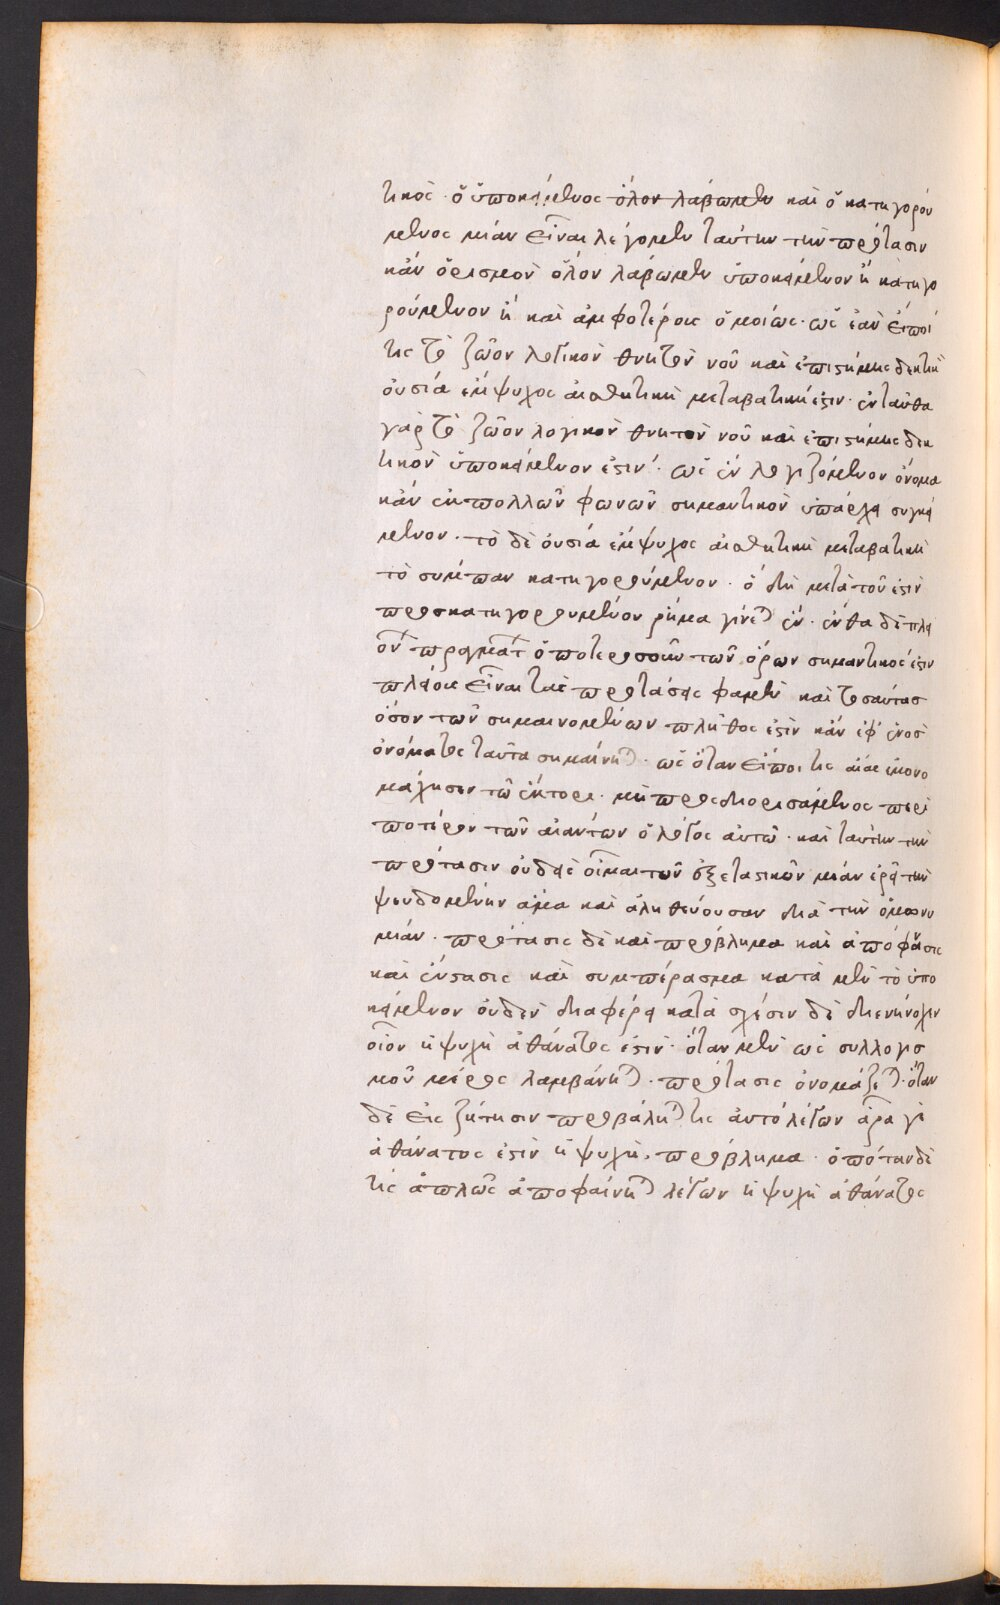 τικὸς · ὁ ὑποκείμενος ὅλον λάβωμεν καὶ ὁ κατηγορού
μενος μίαν εἶναι λέγομεν ταύτην τὴν πρότασιν
κἂν ὁρισμὸν ὅλον λάβωμεν ὑποκείμενον ἢ κατηγο
ρούμενον ἢ καὶ ἀμφοτέρους ὁμοίως · ὡς ἐὰν εἴποι
τις τὸ ζῶον λογικὸν θνητὸν νοῦ καὶ ἐπιστήμης δεκτικὴ
οὐσία ἔμψυχος αἰσθητικὴ μεταβατική ἐστιν · ἐνταῦθα
γὰρ τὸ ζῶον λογικὸν θνητὸν νοῦ καὶ ἐπιστήμης δεκ
τικὸν ὑποκείμενον ἐστίν · ὡς ἓν λογιζόμενον ὄνομα
κἂν ἐκ πολλῶν φωνῶν σημαντικὸν ὑπάρχει συγκεί
μενον · τὸ δὲ οὐσία ἔμψυχος αἰσθητικὴ μεταβατικὴ
τὸ σύμπαν κατηγορούμενον · ὃ δὴ μετὰ τοῦ ἐστὶν
προσκατηγορουμένου ῥῆμα γίνεται ἕν · ἔνθα δὲ πλει
όν πραγμάτ ὁποτεροσοῦν τῶν ὅρων σημαντικός ἐστιν
πλείους εἶναι τὰς προτάσεις φαμὲν καὶ τοσαύτας
ὅσον τῶν σημαινομένων πλῆθος ἐστὶν κἂν ἐφ' ἑνὸσ
ὀνόματος ταῦτα σημαίνηται · ὡς ὅταν εἴποι τις αἴας ἐμονο
μάχησεν τῶ ἕκτορι · μὴ προσδιορισάμενος περὶ
ποτέρου τῶν αἰάντων ὁ λόγος αὐτῶ · καὶ ταύτην τὴν
πρότασιν οὐδεὶς οἶμαι τῶν ἐξεταστικῶν μίαν ἐρεῖ τὴν
ψευδομένην ἅμα καὶ ἀληθεύουσαν διὰ τὴν ὁμωνυ
μίαν · πρότασις δὲ καὶ πρόβλημα καὶ ἀπόφασις
καὶ ἔνστασις καὶ συμπέρασμα κατὰ μὲν τὸ ὑπο
κείμενον οὐδὲν διαφέρει κατὰ σχέσιν δὲ διενήνοχεν
οἷον ἡ ψυχὴ ἀθάνατος ἐστίν · ὅταν μὲν ὡς συλλογισ
μοῦ μέρος λαμβάνηται · πρότασις ὀνομάζεται · ὅταν
δὲ εἰς ζήτησιν προβάληται τις αὐτὸ λέγων ἆρά γε
ἀθάνατος ἐστὶν ἡ ψυχὴ · πρόβλημα · ὁπόταν δὲ
τις ἁπλῶς ἀποφαίνηται λέγων ἡ ψυχὴ ἀθάνατος